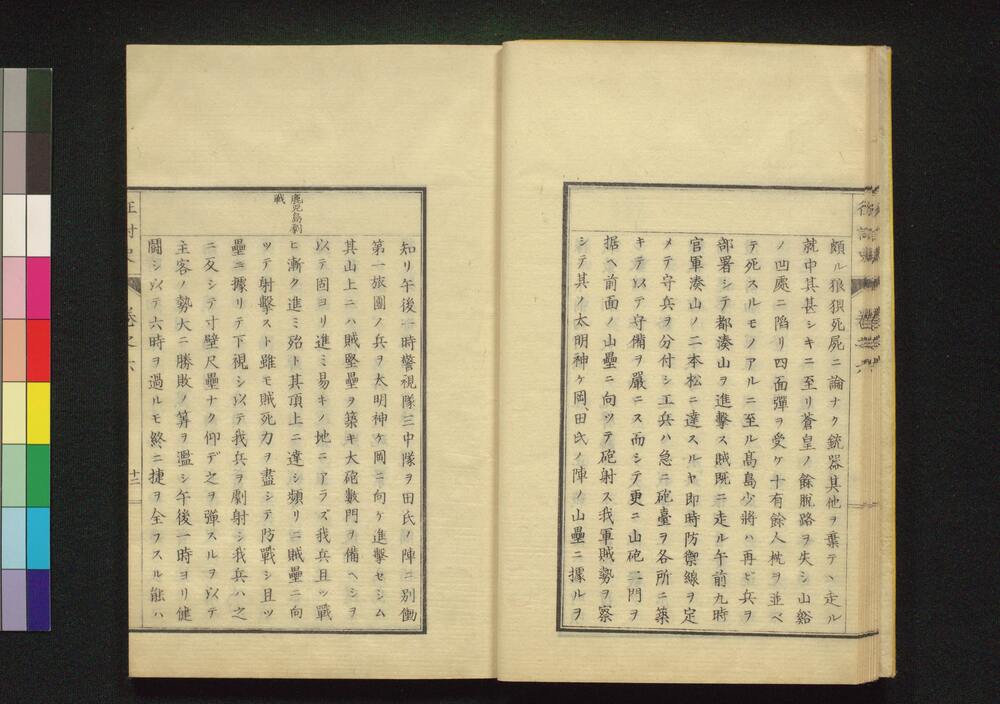 頗ル狼狽死屍ニ論ナク銃器其他ヲ棄テヽ走ル
就中其甚シキニ至リ蒼皇ノ餘脱路ヲ失シ山谿
ノ凹處ニ陷リ四面彈ヲ受ケ十有餘人枕ヲ並ベ
テ死スルモノアルニ至ル髙島少將ハ再ビ兵ヲ
部署シテ都湊山ヲ進撃ス賊既ニ走ル午前九時
官軍湊山ノ二本松ニ達スルヤ即時防禦線ヲ定
メテ守兵ヲ分付シ工兵ハ急ニ砲臺ヲ各所ニ築
キテ以テ守備ヲ嚴ニス而シテ更ニ山砲二門ヲ
据ヘ前面ノ山壘ニ向ツテ砲射ス我軍賊勢ヲ察
シテ其ノ太明神ヶ岡、田氏ノ陣ノ山壘ニ據ルヲ
知リ午後一時警視隊三中隊ヲ田氏ノ陣ニ別働
第一旅團ノ兵ヲ太明神ヶ岡ニ向ケ進撃セシム
其山上ニハ賊堅壘ヲ築キ大砲數門ヲ備ヘシヲ
以テ固ヨリ進ミ易キノ地ニアラズ我兵且ツ戰
鹿児島劇
戰
ヒ漸ク進ミ殆ト其頂上ニ達シ頻リニ賊壘ニ向
ツテ射撃スト雖モ賊死力ヲ盡シテ防戰シ且ツ
壘ニ據リテ下視シ以テ我兵ヲ劇射シ我兵ハ之
ニ反シテ寸壁尺壘ナク仰デ之ヲ彈スルヲ以テ
主客ノ勢大ニ勝敗ノ筭ヲ濫シ午後一時ヨリ健
鬪シ以テ六時ヲ過ルモ終ニ捷ヲ全ヲスル能ハ
征討史
卷之六
十二